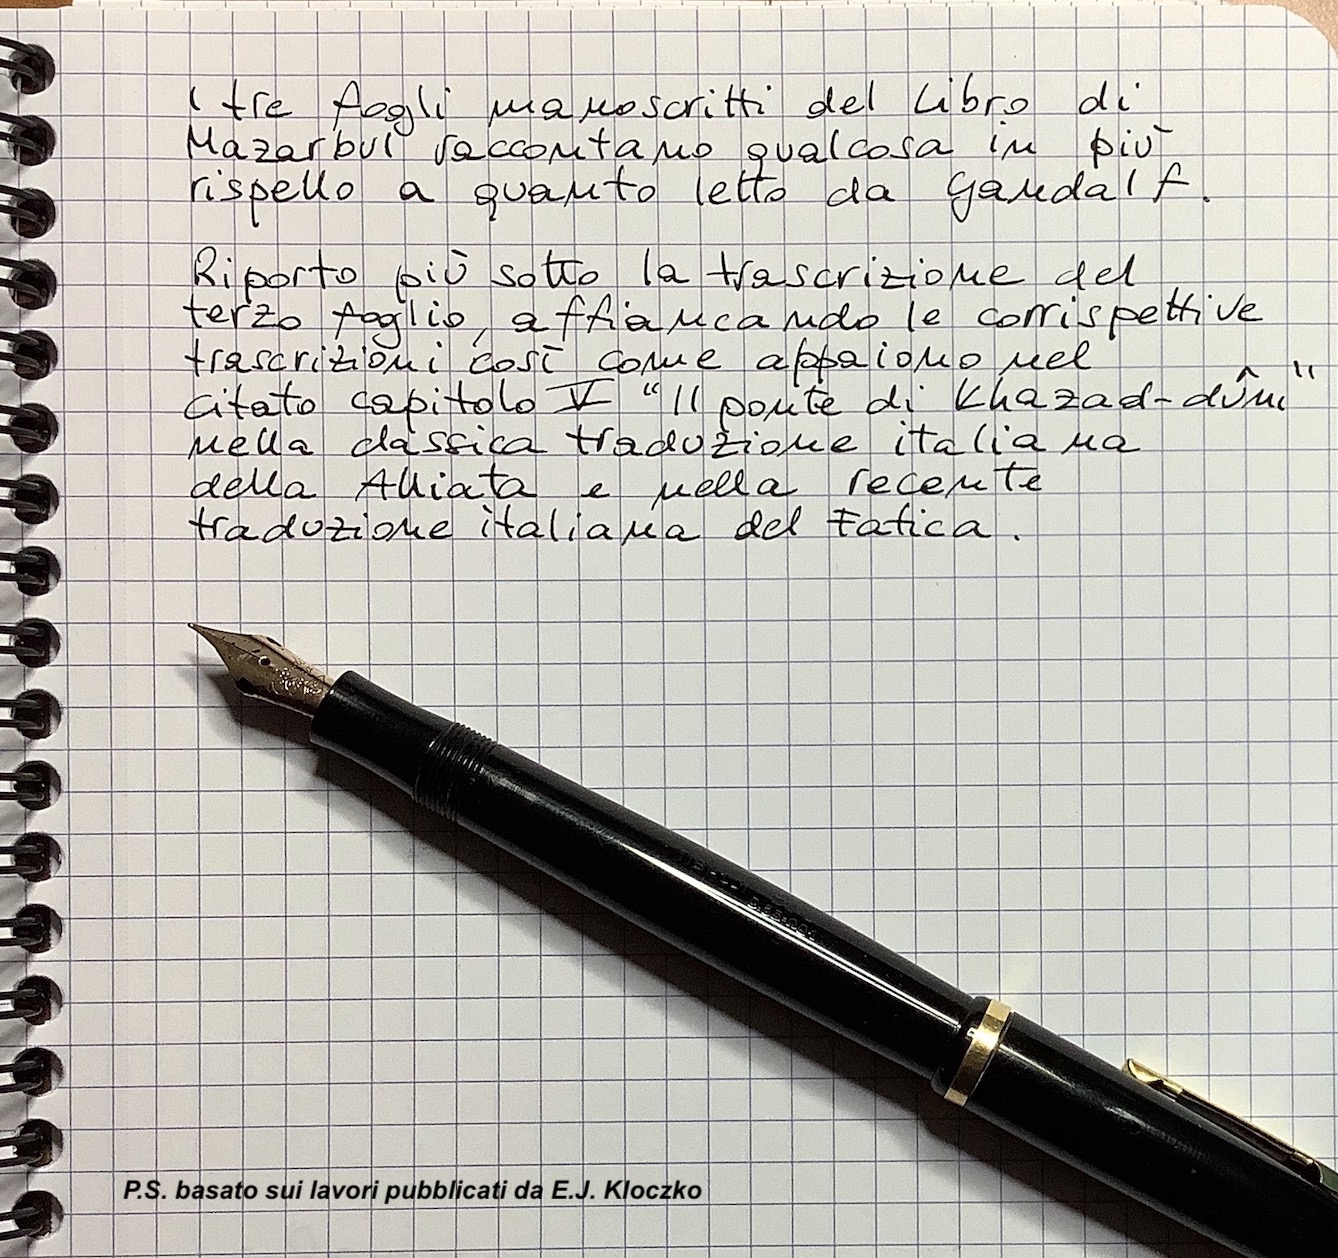 I tre fogli manoscritti del Libro di
Mazarbul raccontano qualcosa in più
rispetto a quanto letto da Gandalf.
Riporto più sotto la trascrizione del
terzo foglio, affiancando le corrispettive
trascrizioni così come appaiono nel
citato capitolo V "Il ponte di Khazad-dûm"
nella classica traduzione italiana
della Alliata e nella recente
traduzione italiana del Fatica.
P.S. basato sui lavori pubblicati da E.J. Kloczko